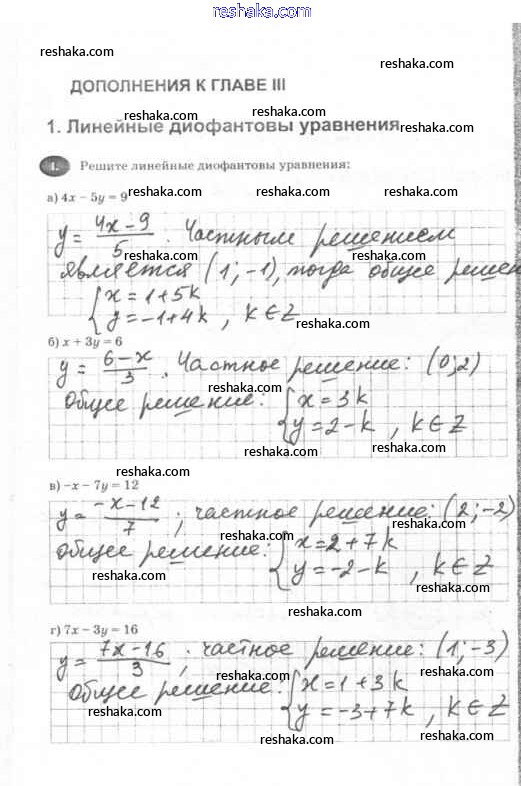 reshaka.com
reshaka.com
reshaka.com
ДОПОЛНЕНИЯ К ГЛАВЕ III
reshaka.com
1. Линейные диофантовы уравнения
reshaka.com
1. Решите линейные диофантовы уравнения:
reshaka.com reshaka.com
а) 4x – 5y = 9
y = (4x-9)/5 . Частным решением
reshaka.com
является (1; -1), тогда общее решен
reshaka.com
{ x = 1 + 5k
y = -1 + 4k , k ∈ Z
reshaka.com
б) x + 3y = 6
reshaka.com
y = (6-x)/3 . Частное решение: (0; 2)
reshaka.com
общее решение: { x = 3k
y = 2 - k , k ∈ Z
reshaka.com reshaka.com
в) –x – 7y = 12
reshaka.com
y = (-x-12)/7 ; частное решение: (2; -2)
общее решение: { x = 2 + 7k
y = -2 - k , k ∈ Z
reshaka.com reshaka.com
reshaka.com
г) 7x – 3y = 16
y = (7x-16)/3 ; частное решение: (1; -3)
reshaka.com
общее решение: { x = 1 + 3k
y = -3 + 7k , k ∈ Z
reshaka.com reshaka.com
reshaka.com
reshaka.com